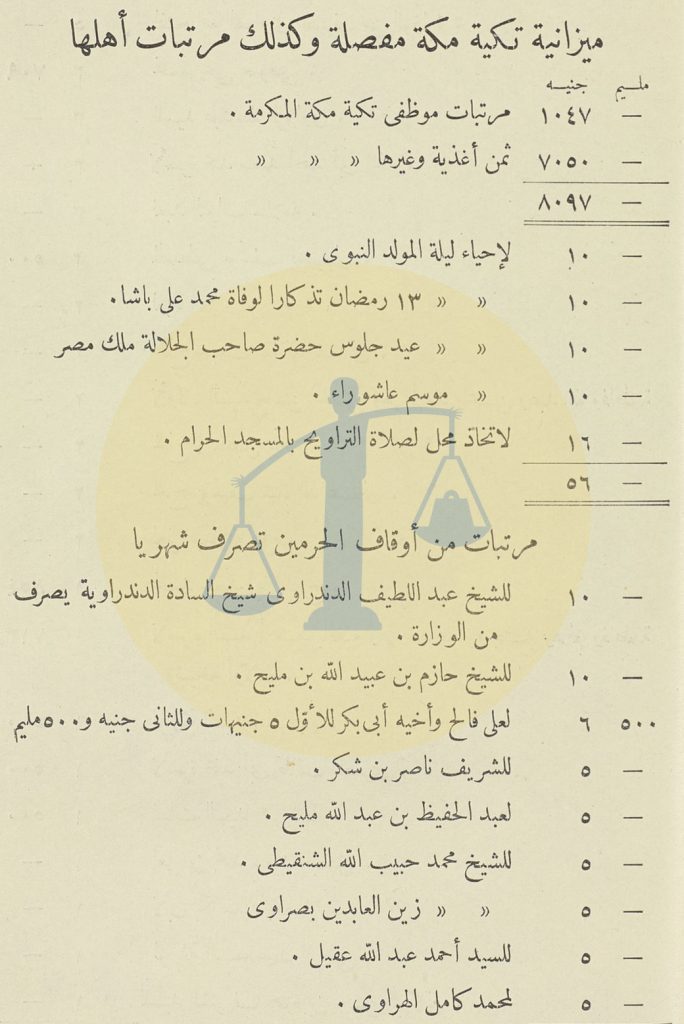 ميزانية تكية مكة مفصلة وكذلك مرتبات أهلها
مليم جنيه
— ١٠٤٧ مرتبات موظفى تكية مكة المكرمة .
— ٧٠٥٠ ثمن أغذية وغيرها » » »
— ٨٠٩٧
— ١٠ لإحياء ليلة المولد النبوى .
— ١٠ » » ١٣ رمضان تذكارا لوفاة محمد على باشا .
— ١٠ » » عيد جلوس حضرة صاحب الجلالة ملك مصر
— ١٠ » موسم عاشوراء .
— ١٦ لاتخاذ محل لصلاة التراويح بالمسجد الحرام .
— ٥٦
مرتبات من أوقاف الحرمين تصرف شهريا
— ١٠ للشيخ عبد اللطيف الدندراوى شيخ السادة الدندراوية يصرف
من الوزارة .
— ١٠ للشيخ حازم بن عبيد الله بن مليح .
٥٠٠ ٦ لعلى فالح وأخيه أبى بكر للأوّل ٥ جنيهات وللثانى جنيه و٥٠٠ مليم
— ٥ للشريف ناصر بن شكر .
— ٥ لعبد الحفيظ بن عبد الله مليح .
— ٥ للشيخ محمد حبيب الله الشنقيطى .
— ٥ » » زين العابدين بصراوى
— ٥ للسيد أحمد عبد الله عقيل .
— ٥ لمحمد كامل الهراوى .